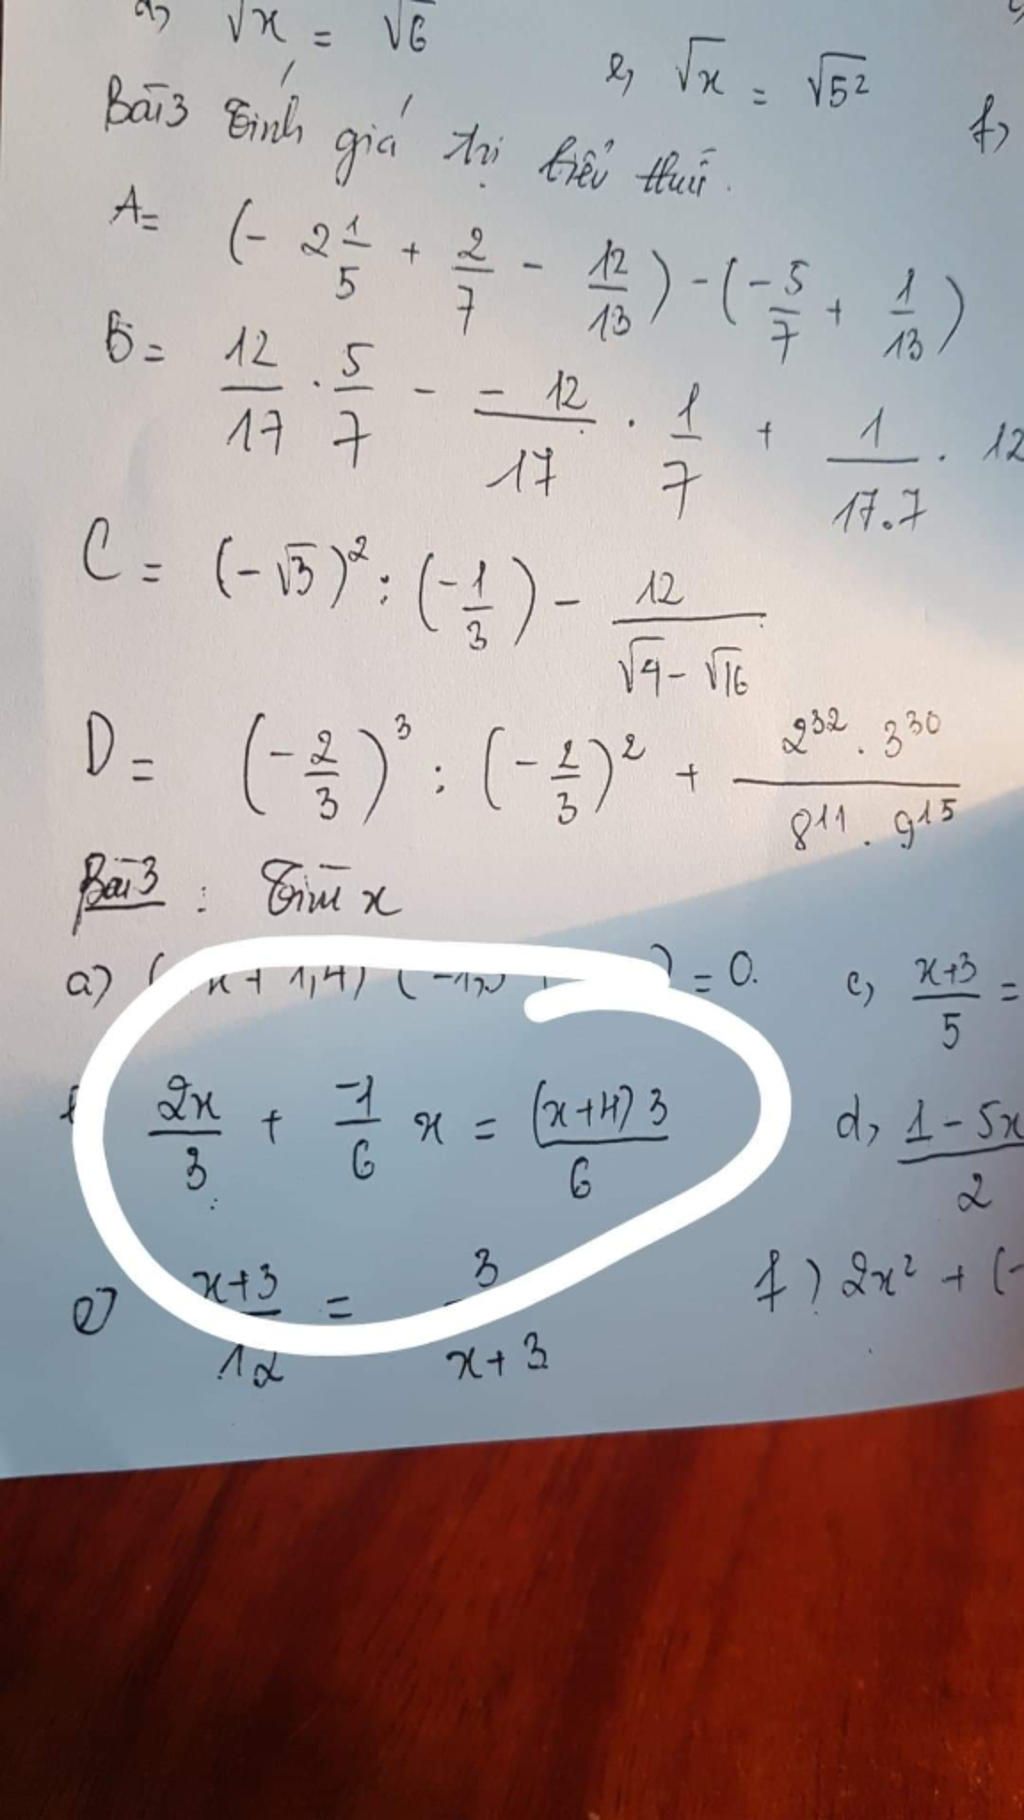 √x = √6
e, √x = √5²
f,
Bài 3 Tính giá trị biểu thức.
A = (- 2 1/5 + 2/7 - 12/13) - (-5/7 + 1/13)
B = 12/17 . 5/7 - -12/17 . 1/7 + 1/17.7 . 12
C = (-√3)² : (-1/3) - 12/(√4 - √16)
D = (-2/3)³ : (-2/3)² + 2³² . 3³⁰ / 8¹¹ . 9¹⁵
Bài 3 : Tìm x
a) ( x + 1,4) ( ) = 0.
c, x+3/5 =
2x/3 + -1/6 x = (x+4) 3/6
d, 1 - 5x/2
e) x+3/12 = 3/x+3
f) 2x² + (-